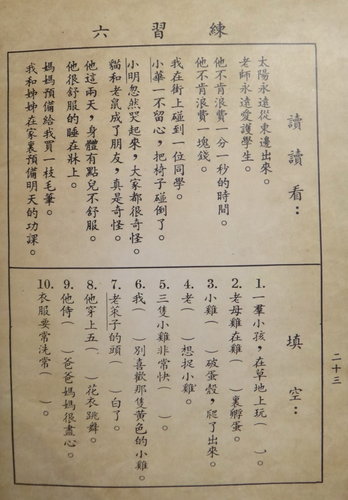 練習六
讀讀看：
太陽永遠從東邊出來。
老師永遠愛護學生。
他不肯浪費一分一秒的時間。
他不肯浪費一塊錢。
我在街上碰到一位同學。
小華一不留心，把椅子碰倒了。
小明忽然哭起來，大家都很奇怪。
貓和老鼠成了朋友，真是奇怪。
他這兩天，身體有點兒不舒服。
他很舒服的睡在牀上。
媽媽預備給我買一枝毛筆。
我和姊姊在家裏預備明天的功課。
填空：
1. 一羣小孩，在草地上玩（　）。
2. 老母雞在雞（　）裏孵蛋。
3. 小雞（　）破蛋殼，爬了出來。
4. 老（　）想捉小雞。
5. 三隻小雞非常快（　）。
6. 我（　）別喜歡那隻黃色的小雞。
7. 老萊子的頭（　）白了。
8. 他穿上五（　）花衣跳舞。
9. 他侍（　）爸爸媽媽很盡心。
10. 衣服要常洗常（　）。
二十三